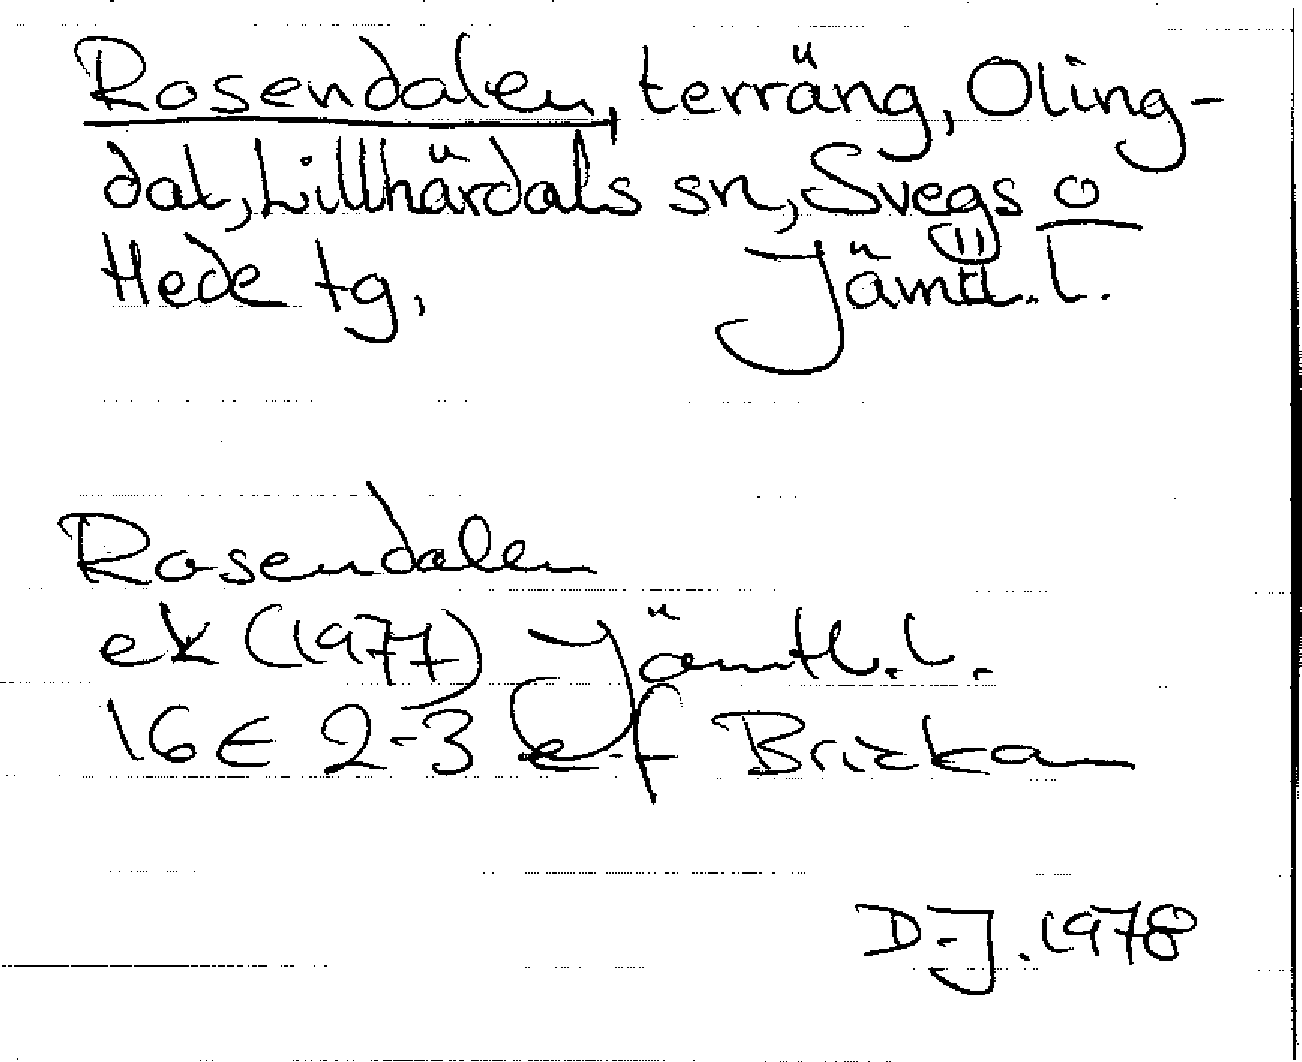 Rosendalen, terräng, Oling-
dal, Lillhärdals sn, Svegs o
Hede tg, Jämtl. l.
Rosendalen
ek (1977) Jämtl. l.
16E 2-3 e-f Brickan
D-J. 1978